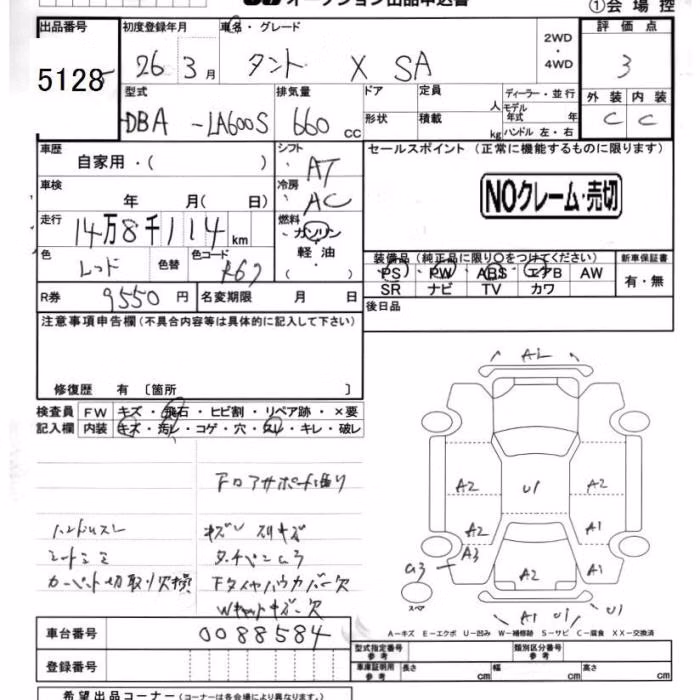 オークション出品申込書
①会場控
出品番号 初度登録年月 車名・グレード 2WD・4WD 評価点
5128 26 3月 タント X SA 3
型式 排気量 ドア 定員 人 ディーラー・並行 外装 内装
DBA -LA600S 660 cc 形状 積載 kg モデル年式 年 ハンドル 左・右 C C
車歴 自家用・( ) シフト AT セールスポイント (正常に機能するものに限ります)
車検 年 月( 日) 冷房 AC NOクレーム・売切
走行 14万8千114 km 燃料 ガソリン・軽油・( )
色 レッド 色替 色コード R67
装備品 (純正品に限り○をつけてください) 新車保証書
PS PW ABS エアB AW 有・無
SR ナビ TV カワ
R券 9550円 名変期限 月 日 後日品
注意事項申告欄 (不具合内容等は具体的に記入して下さい)
修復歴 有 〔箇所 〕
検査員 FW キズ・飛石・ヒビ割・リペア跡・×要
記入欄 内装 キズ・汚レ・コゲ・穴・スレ・キレ・破レ
ハンドルスレ
シートシミ
カーペット切取り欠損
A2
A2 U1 A2
A2 A1
A3
G3 A2 A1
スペア
A1 U1 U1
A-キズ E-エクボ U-凹み W-補修跡 S-サビ C-腐食 XX-交換済
車台番号 0088584
型式指定番号 参考 類別区分番号 参考
登録番号
車庫証明用 参考 長さ cm 幅 cm 高さ cm
希望出品コーナー (コーナーは各会場により異なります。)